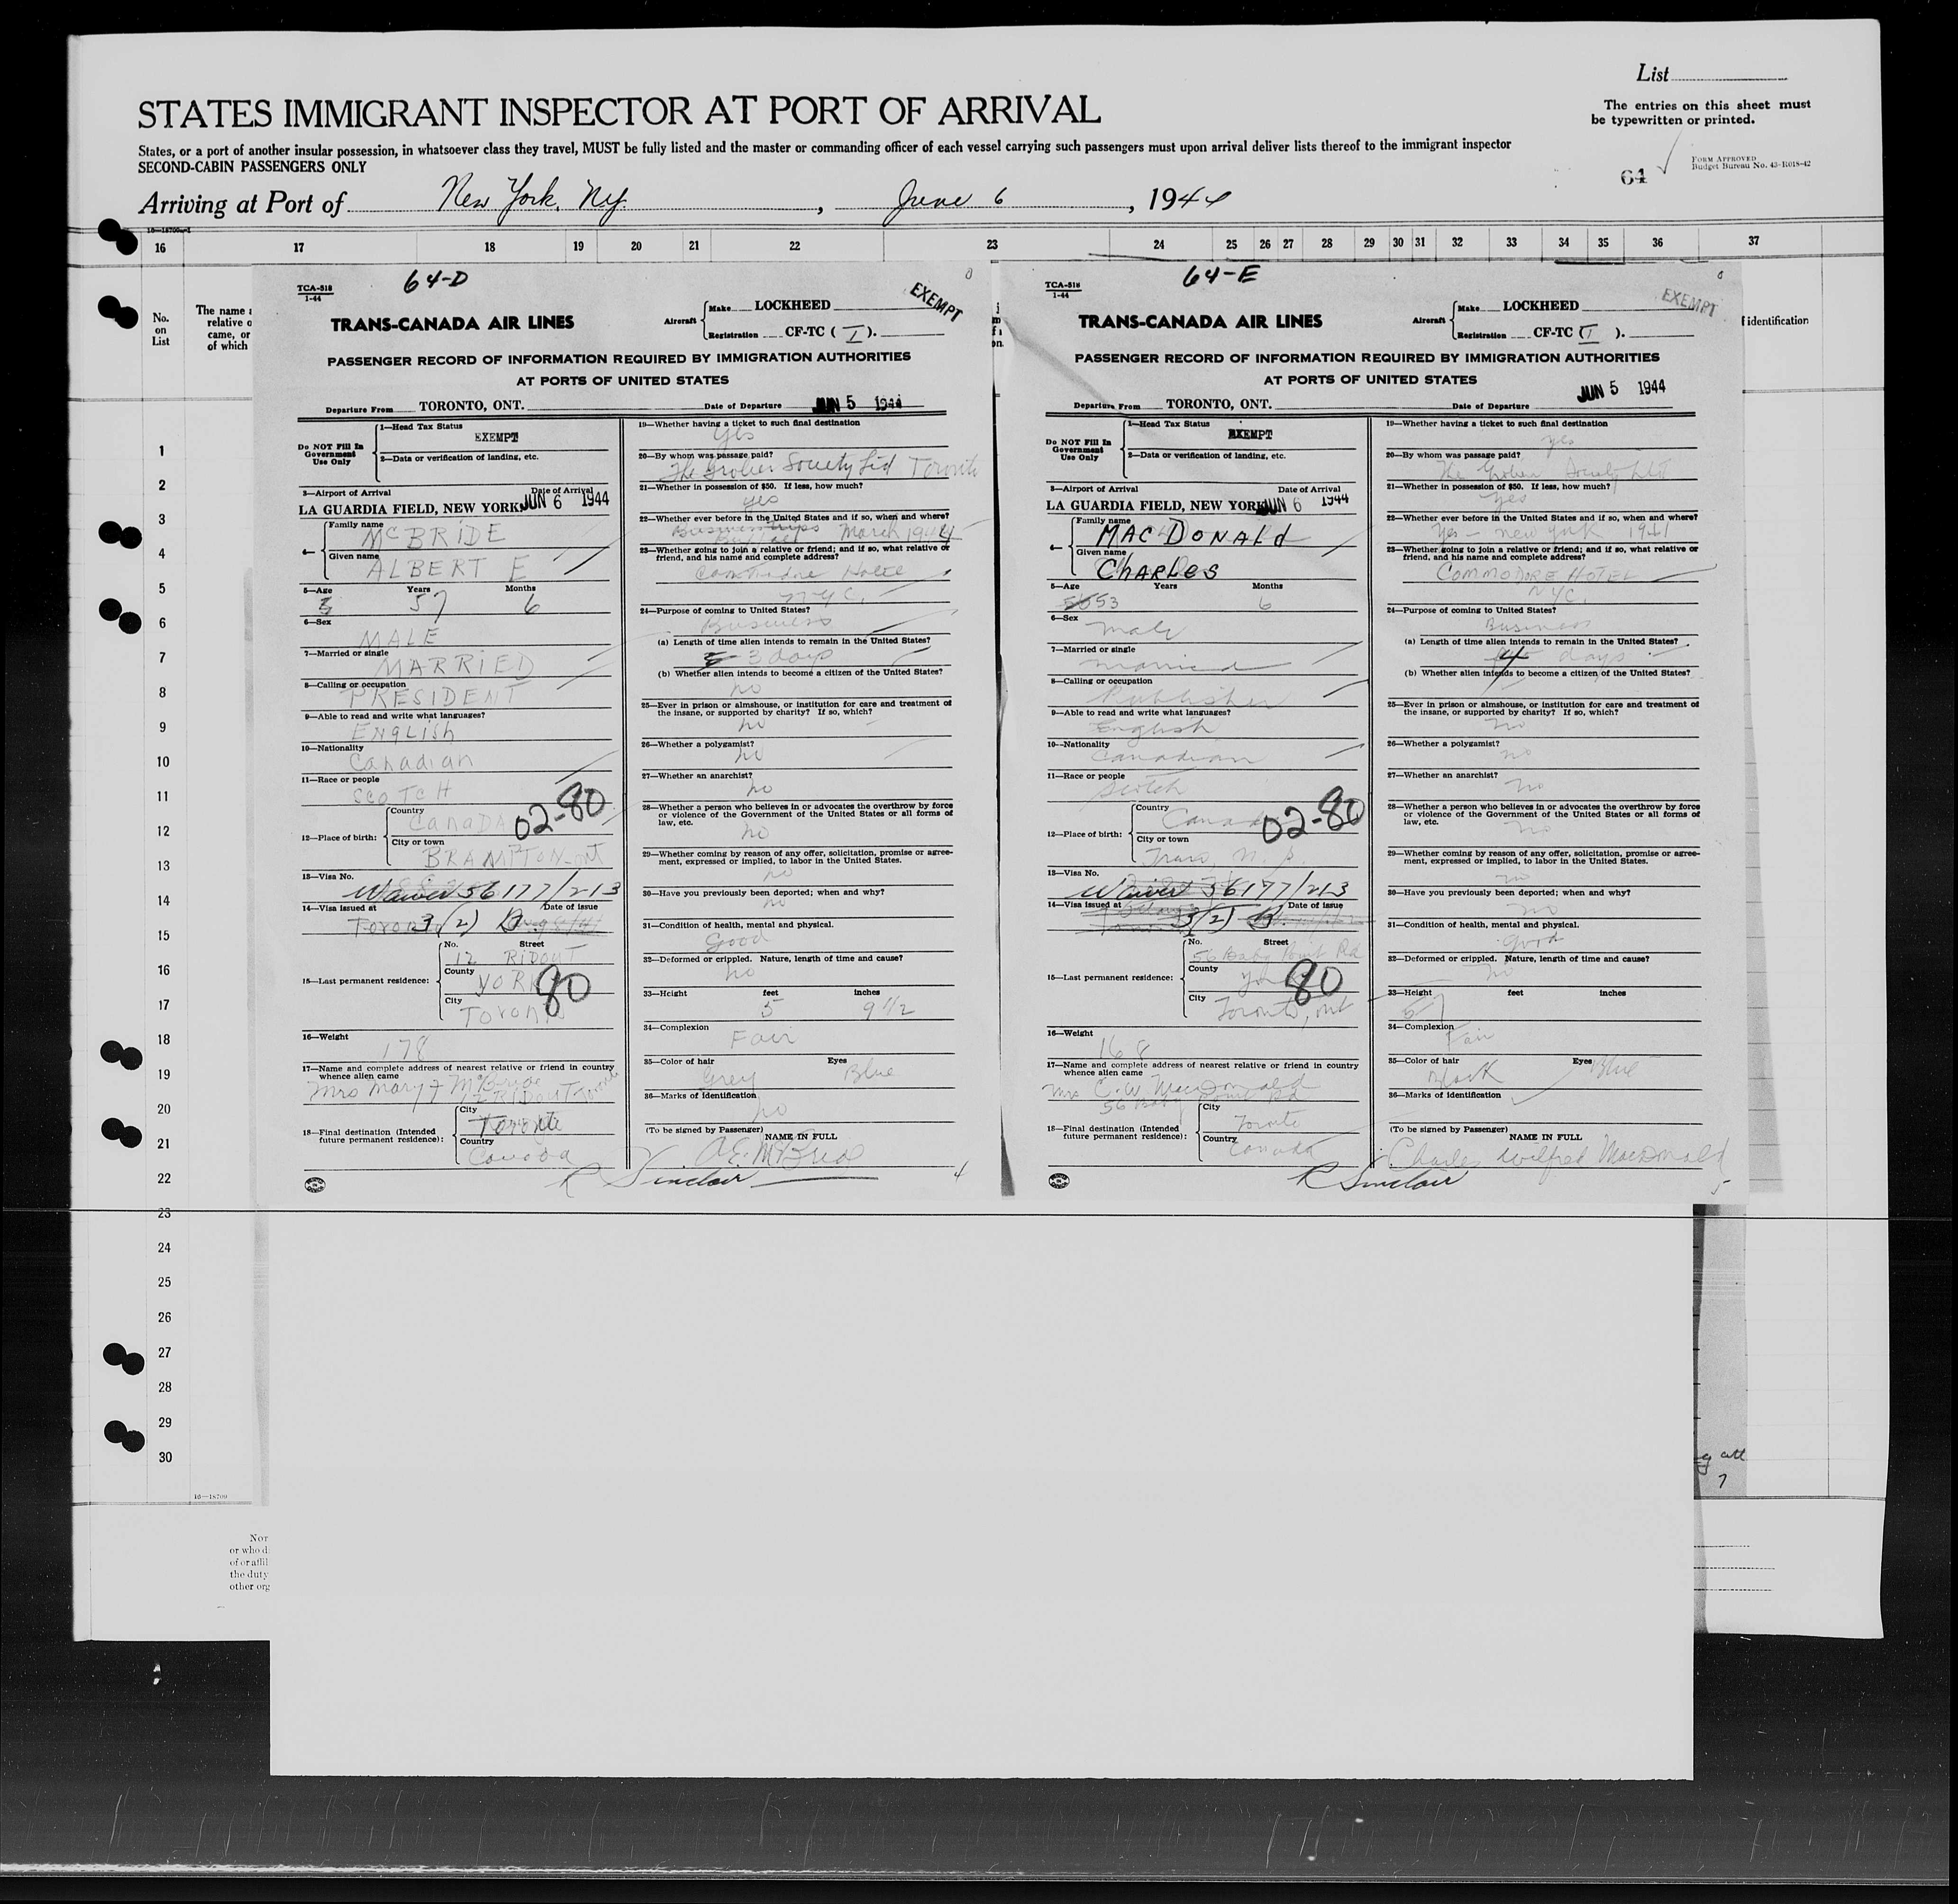 List
STATES IMMIGRANT INSPECTOR AT PORT OF ARRIVAL
The entries on this sheet must
be typewritten or printed.
States, or a port of another insular possession, in whatsoever class they travel, MUST be fully listed and the master or commanding officer of each vessel carrying such passengers must upon arrival deliver lists thereof to the immigrant inspector
SECOND-CABIN PASSENGERS ONLY
FORM APPROVED
Budget Bureau No. 43-R018-42
64
Arriving at Port of New York, Ny. , June 6 , 1944
16 17 18 19 20 21 22 23 24 25 26 27 28 29 30 31 32 33 34 35 36 37
No.
on
List
The name a
relative o
came, or
of which
f identification
1
2
3
4
5
6
7
8
9
10
11
12
13
14
15
16
17
18
19
20
21
22
23
24
25
26
27
28
29
30
16—18700
Nor
or who d
of or affil
the duty
other org
64-D
TCA-518
1-44
EXEMPT
TRANS-CANADA AIR LINES
Aircraft
Make LOCKHEED
Registration CF-TC ( I ).
PASSENGER RECORD OF INFORMATION REQUIRED BY IMMIGRATION AUTHORITIES
AT PORTS OF UNITED STATES
Departure From TORONTO, ONT. Date of Departure JUN 5 1944
Do NOT Fill In
Government
Use Only
1—Head Tax Status
EXEMPT
2—Data or verification of landing, etc.
3—Airport of Arrival Date of Arrival
LA GUARDIA FIELD, NEW YORK JUN 6 1944
4—
Family name
McBRIDE
Given name
ALBERT E
5—Age Years Months
57 6
6—Sex
MALE
7—Married or single
MARRIED
8—Calling or occupation
PRESIDENT
9—Able to read and write what languages?
ENGLISH
10—Nationality
Canadian
11—Race or people
SCOTCH
12—Place of birth:
Country
CANADA
02-80
City or town
BRAMPTON-ont
13—Visa No.
Waiver 56177/213
14—Visa issued at Date of issue
3(2) B
15—Last permanent residence:
No. Street
12 RIDOUT
County
YORK
80
City
TORONTO
16—Weight
178
17—Name and complete address of nearest relative or friend in country
whence alien came
Mrs Mary F McBride
12 RIDOUT Toronto
18—Final destination (Intended
future permanent residence):
City
Toronto
Country
Canada
19—Whether having a ticket to such final destination
Yes
20—By whom was passage paid?
The Grolier Society Ltd Toronto
21—Whether in possession of $50. If less, how much?
yes
22—Whether ever before in the United States and if so, when and where?
Business trips
Buffalo March 1944
23—Whether going to join a relative or friend; and if so, what relative or
friend, and his name and complete address?
Commodore Hotel
NYC.
24—Purpose of coming to United States?
Business
(a) Length of time alien intends to remain in the United States?
3 days
(b) Whether alien intends to become a citizen of the United States?
no
25—Ever in prison or almshouse, or institution for care and treatment of
the insane, or supported by charity? If so, which?
no
26—Whether a polygamist?
no
27—Whether an anarchist?
no
28—Whether a person who believes in or advocates the overthrow by force
or violence of the Government of the United States or all forms of
law, etc.
no
29—Whether coming by reason of any offer, solicitation, promise or agree-
ment, expressed or implied, to labor in the United States.
no
30—Have you previously been deported; when and why?
no
31—Condition of health, mental and physical.
Good
32—Deformed or crippled. Nature, length of time and cause?
no
33—Height feet inches
5 9 1/2
34—Complexion
Fair
35—Color of hair Eyes
Grey Blue
36—Marks of Identification
no
(To be signed by Passenger)
NAME IN FULL
A.E. McBride
R Sinclair
4
64-E
TCA-518
1-44
EXEMPT
TRANS-CANADA AIR LINES
Aircraft
Make LOCKHEED
Registration CF-TC ( I ).
PASSENGER RECORD OF INFORMATION REQUIRED BY IMMIGRATION AUTHORITIES
AT PORTS OF UNITED STATES
Departure From TORONTO, ONT. Date of Departure JUN 5 1944
Do NOT Fill In
Government
Use Only
1—Head Tax Status
EXEMPT
2—Data or verification of landing, etc.
3—Airport of Arrival Date of Arrival
LA GUARDIA FIELD, NEW YORK JUN 6 1944
4—
Family name
MACDONALd
Given name
CHARLES
5—Age Years Months
53 6
6—Sex
male
7—Married or single
married
8—Calling or occupation
Publisher
9—Able to read and write what languages?
English
10—Nationality
Canadian
11—Race or people
Scotch
12—Place of birth:
Country
Canada
02-80
City or town
Truro, N.S.
13—Visa No.
Waiver 56177/213
14—Visa issued at Date of issue
3(2) B
15—Last permanent residence:
No. Street
56 Baby Point Rd
County
York
80
City
Toronto, ont
16—Weight
168
17—Name and complete address of nearest relative or friend in country
whence alien came
Mrs C. W. MacDonald
56 Baby Point Rd
18—Final destination (Intended
future permanent residence):
City
Toronto
Country
Canada
19—Whether having a ticket to such final destination
yes
20—By whom was passage paid?
The Grolier Society Ltd
21—Whether in possession of $50. If less, how much?
yes
22—Whether ever before in the United States and if so, when and where?
Yes — new york 1941
23—Whether going to join a relative or friend; and if so, what relative or
friend, and his name and complete address?
COMMODORE HOTEL
NYC.
24—Purpose of coming to United States?
Business
(a) Length of time alien intends to remain in the United States?
4 days
(b) Whether alien intends to become a citizen of the United States?
25—Ever in prison or almshouse, or institution for care and treatment of
the insane, or supported by charity? If so, which?
no
26—Whether a polygamist?
no
27—Whether an anarchist?
no
28—Whether a person who believes in or advocates the overthrow by force
or violence of the Government of the United States or all forms of
law, etc.
no
29—Whether coming by reason of any offer, solicitation, promise or agree-
ment, expressed or implied, to labor in the United States.
no
30—Have you previously been deported; when and why?
no
31—Condition of health, mental and physical.
good
32—Deformed or crippled. Nature, length of time and cause?
no
33—Height feet inches
5 7
34—Complexion
Fair
35—Color of hair Eyes
Black Blue
36—Marks of Identification
(To be signed by Passenger)
NAME IN FULL
Charles Wilfred MacDonald
R Sinclair
5
7